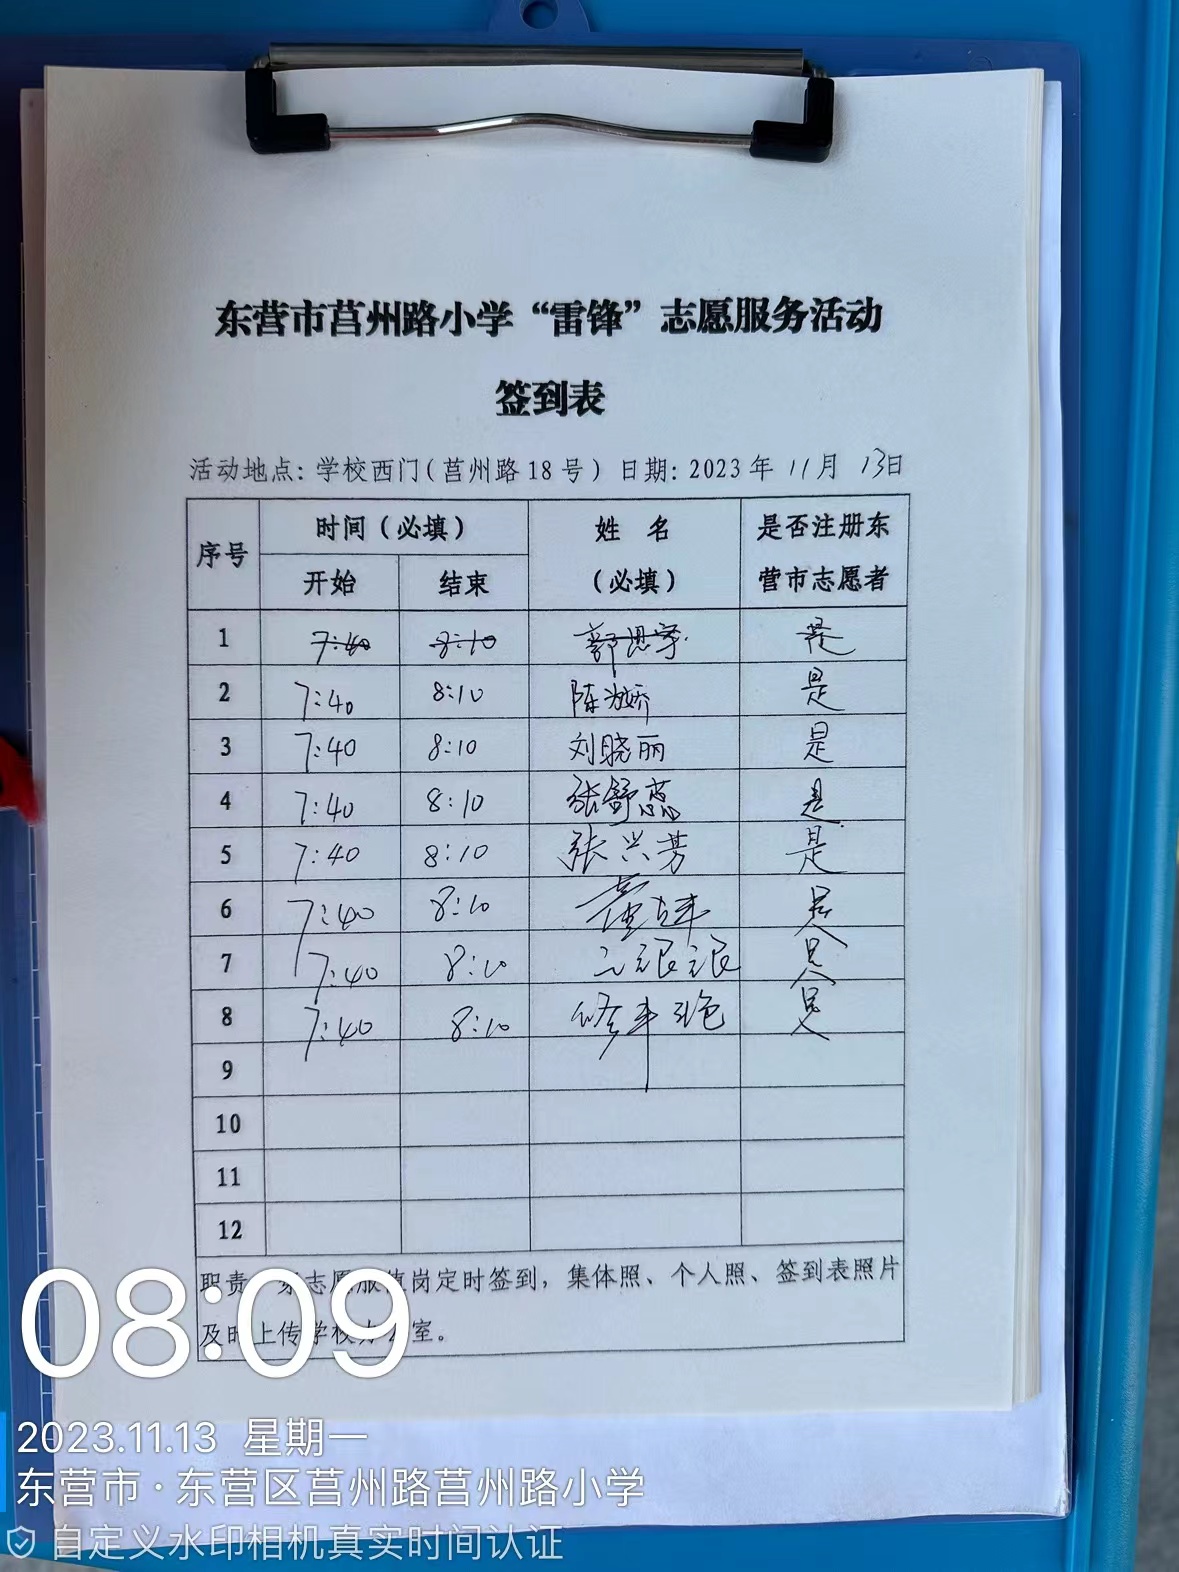 东营市莒州路小学“雷锋”志愿服务活动
签到表
活动地点：学校西门（莒州路18号）日期：2023年 11月 13日
序号 时间（必填） 姓 名（必填） 是否注册东营市志愿者
开始 结束
1 7:40 8:10 郭思宇 是
2 7:40 8:10 陈为娇 是
3 7:40 8:10 刘晓丽 是
4 7:40 8:10 张舒蕊 是
5 7:40 8:10 张兴芳 是
6 7:40 8:10 是
7 7:40 8:10 是
8 7:40 8:10 是
9
10
11
12
职责 志愿服 值岗定时签到，集体照、个人照、签到表照片
及时上传学校办公室。
08:09
2023.11.13 星期一
东营市·东营区莒州路莒州路小学
自定义水印相机真实时间认证